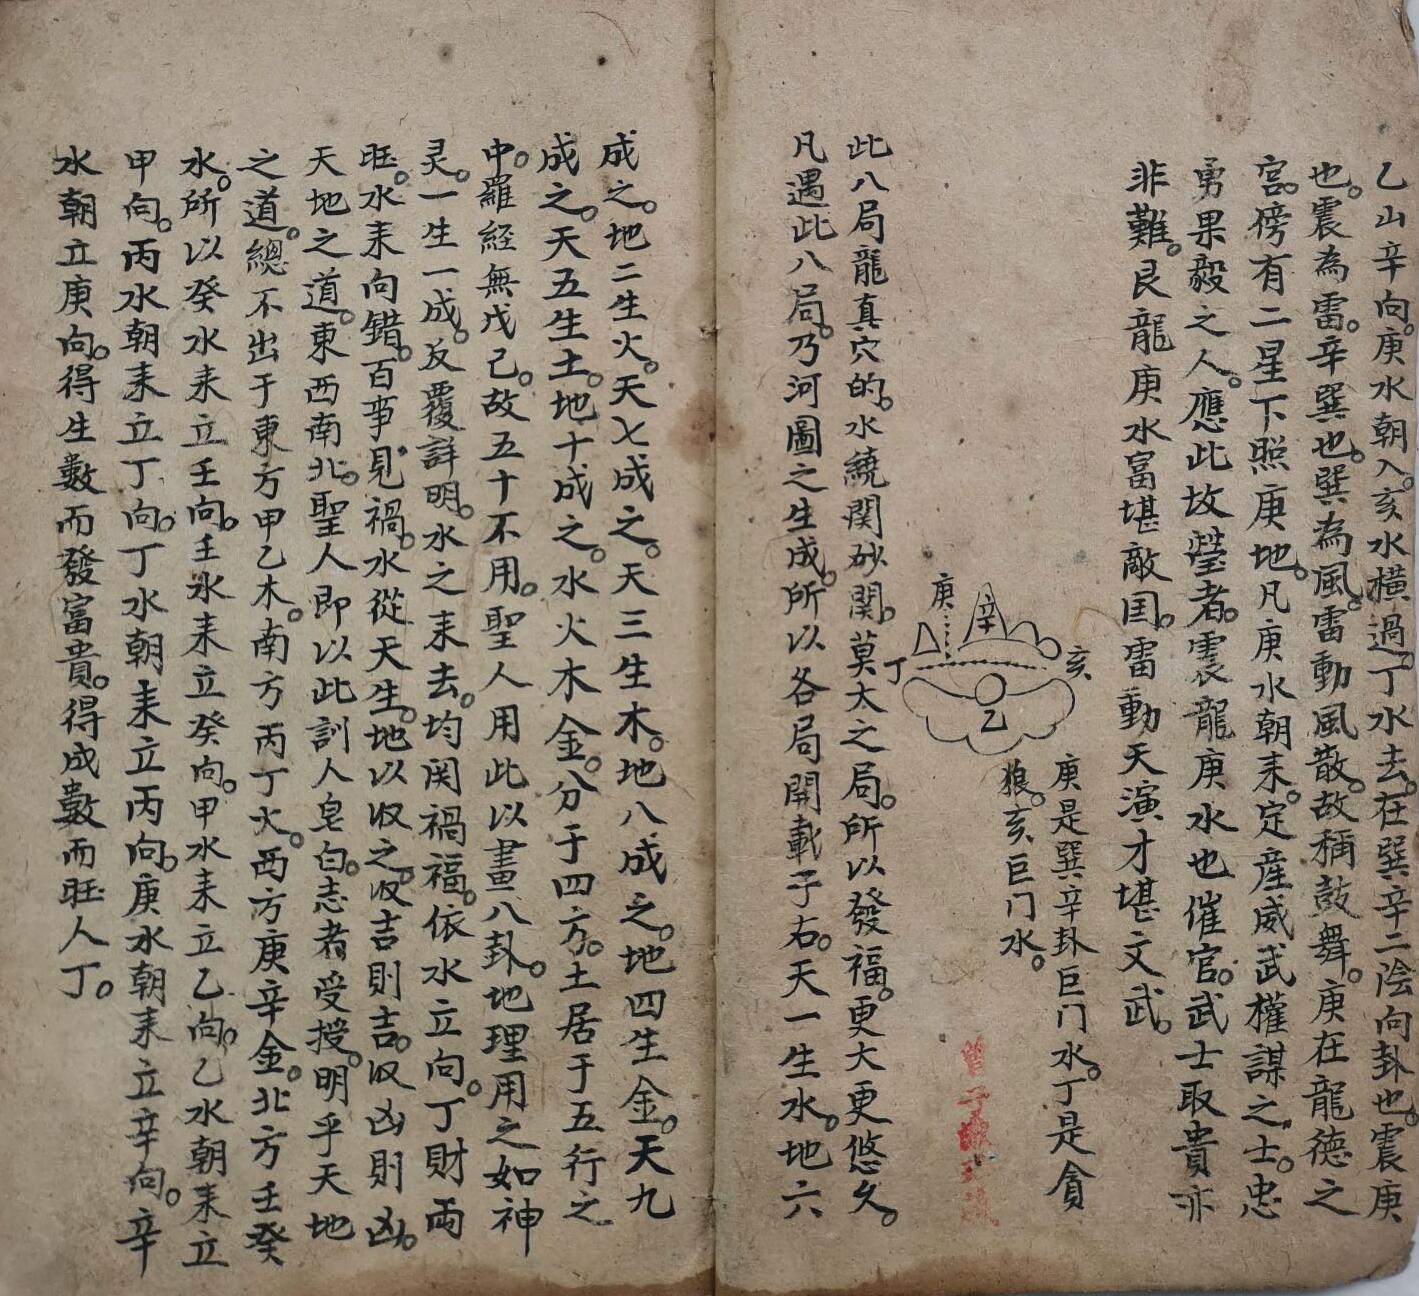 乙山辛向。庚水朝入。亥水橫過。丁水去。在巽辛二陰向卦也。震庚
也。震為雷。辛巽也。巽為風。雷動風散。故稱鼓舞。庚在龍德之
宮。傍有二星下照庚地。凡庚水朝耒。定産威武權謀之士。忠
勇果毅之人。應此故瑩者。震龍庚水也催官。武士取貴亦
非難。艮龍庚水富堪敵国。雷動天演才堪文武。
庚
辛
亥
丁
乙
庚是巽辛卦巨门水。丁是貪
狼。亥巨门水。
此八局龍真穴的。水繞関砂関。莫大之局。所以發福。更大更悠久。
凡遇此八局。乃河圖之生成。所以各局開載于右。天一生水。地六
成之。地二生火。天七成之。天三生木。地八成之。地四生金。天九
成之。天五生土。地十成之。水火木金。分于四方。土居于五行之
中。羅經無戊己。故五十不用。聖人用此以畫八卦。地理用之如神
灵。一生一成。反覆詳明。水之耒去。均関禍福。依水立向。丁財両
旺。水耒向錯。百事見禍。水從天生。地以収之。収吉則吉。収凶則凶。
天地之道。東西南北。聖人即以此訓人皂白。志者受授。明乎天地
之道。總不出于東方甲乙木。南方丙丁火。西方庚辛金。北方壬癸
水。所以癸水耒立壬向。壬水耒立癸向。甲水耒立乙向。乙水朝耒立
甲向。丙水朝耒立丁向。丁水朝耒立丙向。庚水朝耒立辛向。辛
水朝立庚向。得生數而發富貴。得成數而旺人丁。